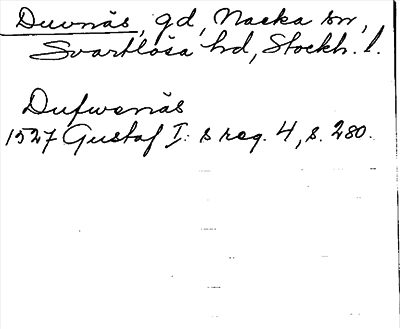 Duvnäs, gd, Nacka sn,
Svartlösa hd, Stockh. l.
Dufwenäs
1527 Gustaf I: s reg. 4, s. 280.